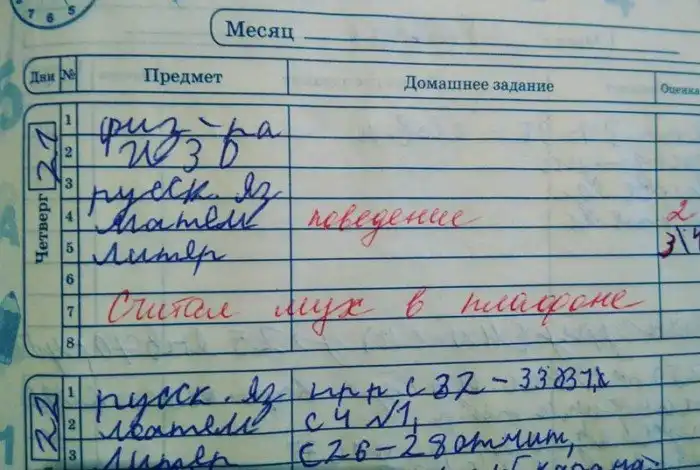 7 6 5
Месяц
Дни № Предмет Домашнее задание Оценка
Четверг 21
1 физ-ра
2 ИЗО
3 русск. яз
4 матем поведение 2
5 литер 3\4
6
7 Считал мух в плафоне
8
22
1 русск. яз
2 матем с 4 №1,
3 литер с 26-28 отчит,